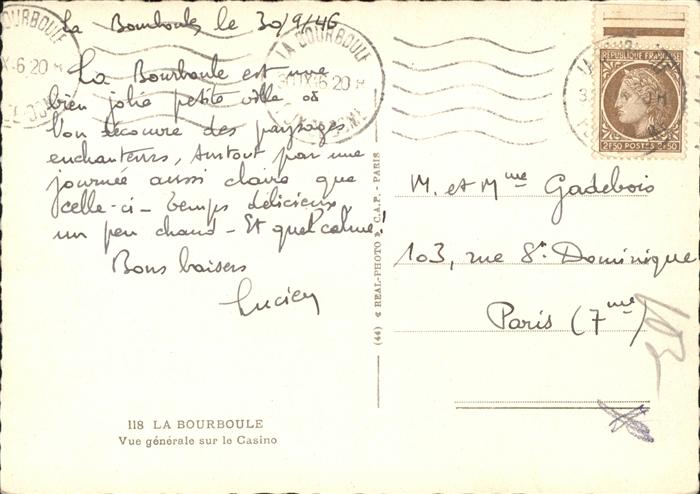 La Bourboule le 30/9/46
La Bourboule est une
bien jolie petite ville où
l'on découvre des paysages
enchanteurs, surtout par une
journée aussi claire que
celle-ci - Temps délicieux,
un peu chaud - Et quel calme!
Bons baisers
Lucien
118 LA BOURBOULE
Vue générale sur le Casino
(44) « REAL-PHOTO » C.A.P. - PARIS
LA BOURBOULE
30 IX 46 20 H
REPUBLIQUE FRANÇAISE
2F50 POSTES 2F50
M. et Mme Gadebois
103, rue St. Dominique
Paris (7me)
103